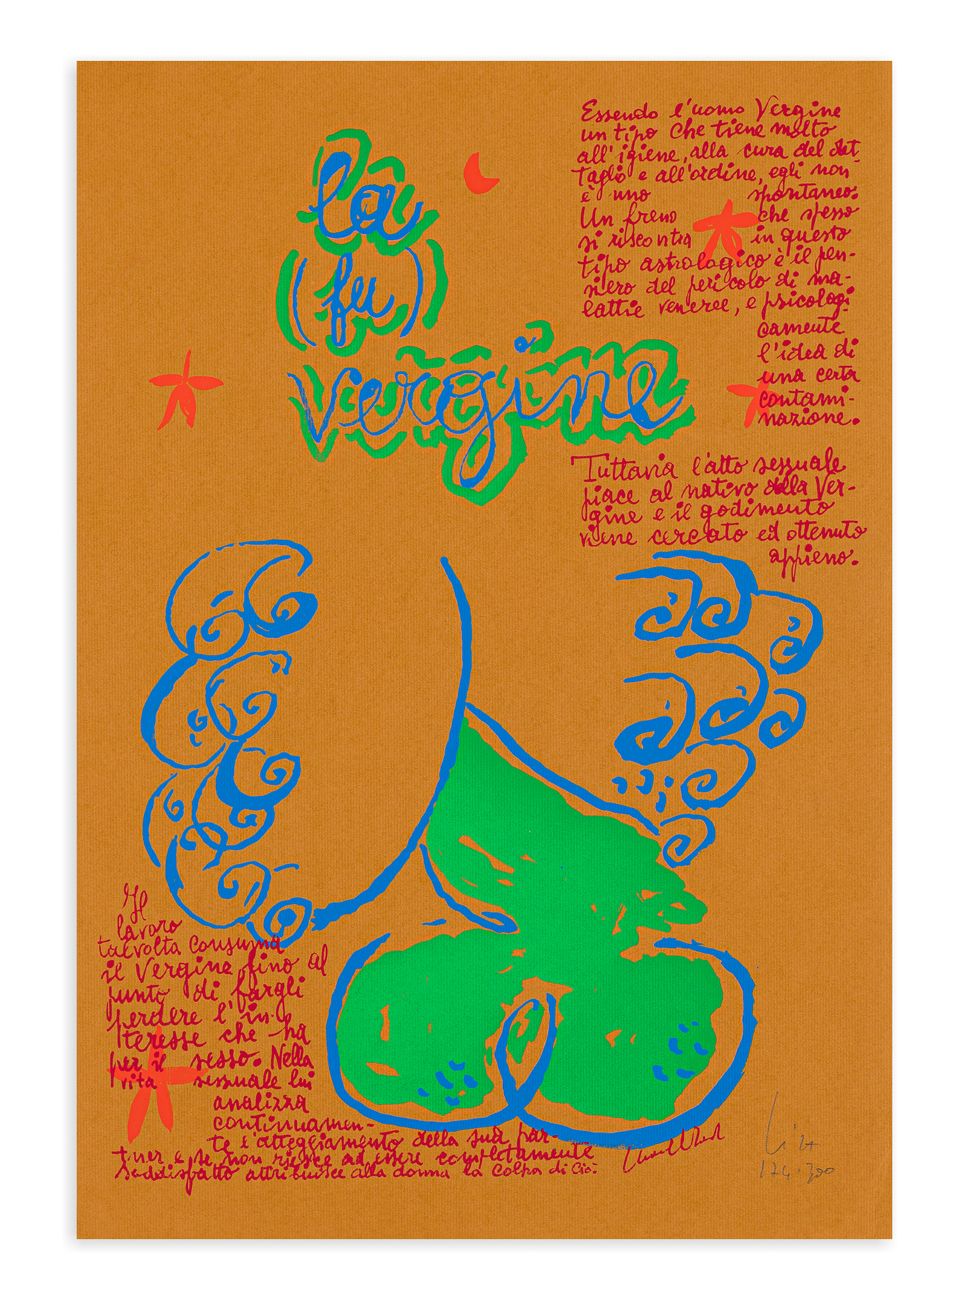 la
(fu)
vergine
Essendo l'uomo Vergine
un tipo che tiene molto
all'igiene, alla cura del det-
taglio e all'ordine, egli non
è uno spontaneo.
Un freno che spesso
si riscontra in questo
tipo astrologico è il pen-
siero del pericolo di ma-
lattie veneree, e psicologi-
camente
l'idea di
una certa
contami-
nazione.
Tuttavia l'atto sessuale
piace al nativo della Ver-
gine e il godimento
viene cercato ed ottenuto
appieno.
Il
lavoro
talvolta consuma
il Vergine fino al
punto di fargli
perdere l'in-
teresse che ha
per il sesso. Nella
vita sessuale lui
analizza
continuamen-
te l'atteggiamento della sua par-
tner e se non riesce ad essere completamente
soddisfatto attribuisce alla donna la colpa di ciò.
174/300